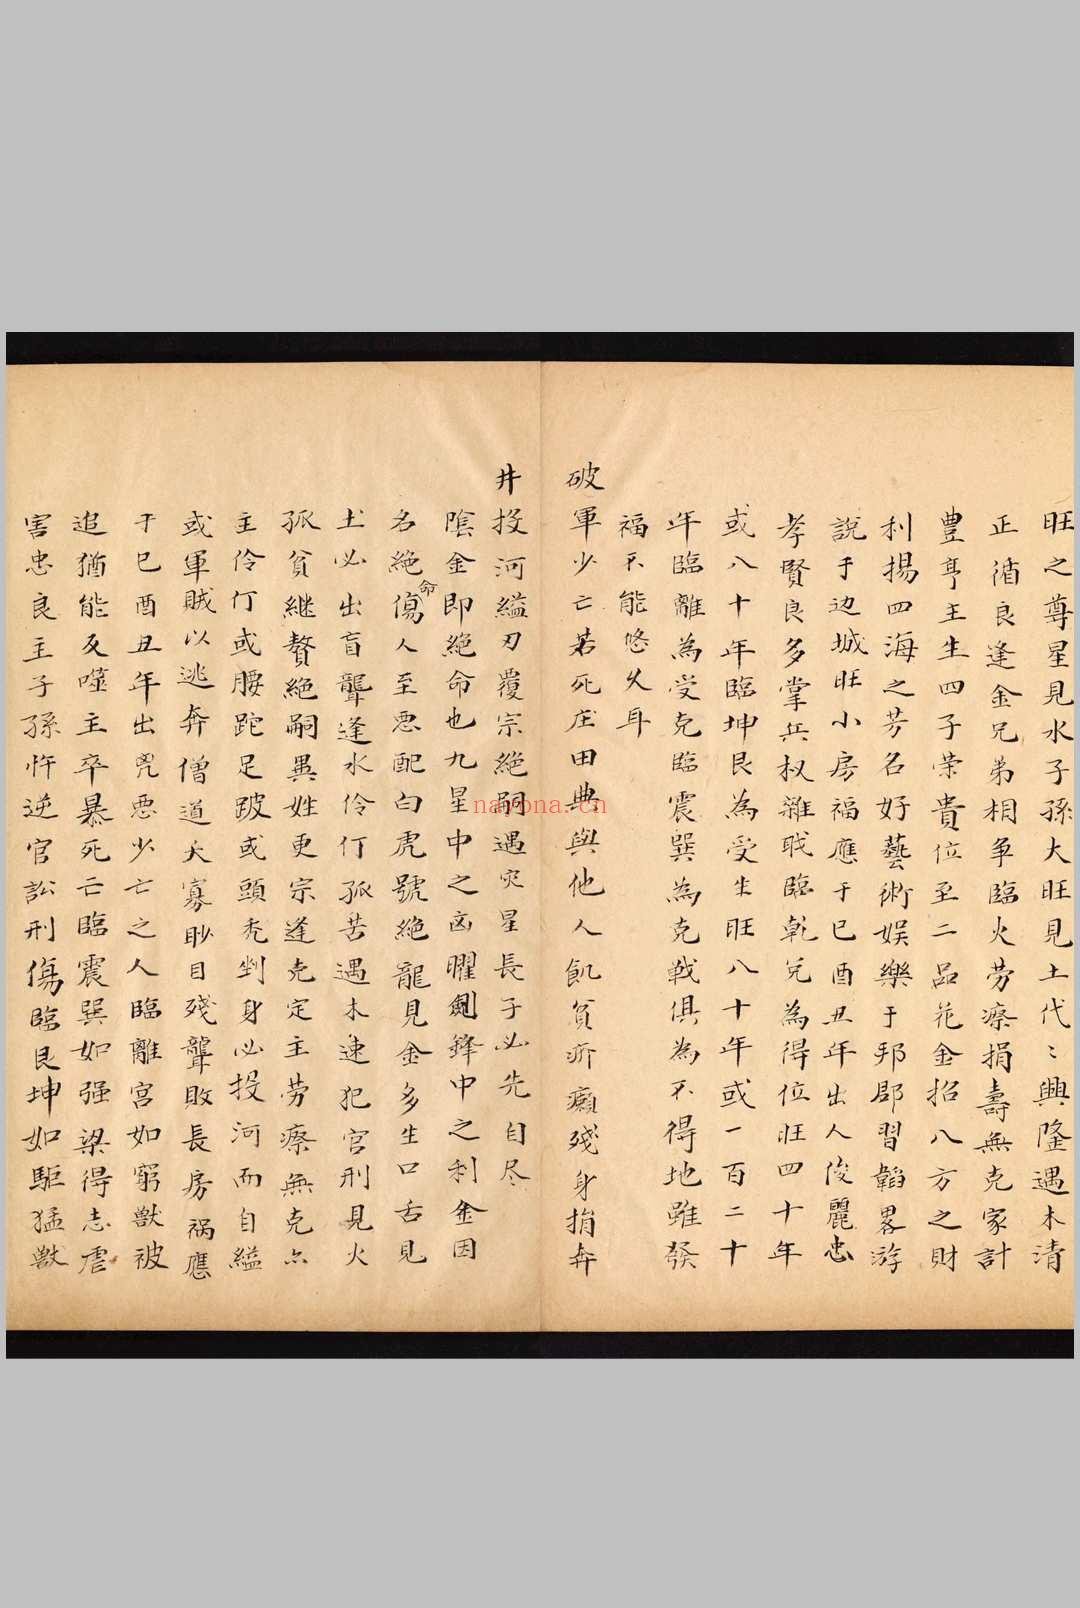 旺之尊星見水子孫大旺見土代〻興隆遇木清
正循良逢金兄弟相争臨火劳瘵捐壽無克家計
豊亨主生四子荣貴位至二品花金招八方之財
利揚四海之芳名好藝術娱樂于邦郡習韜畧游
說于边城旺小房福應于巳酉丑年出人俊麗忠
孝賢良多掌兵权雜职臨乾兌為得位旺四十年
或八十年臨坤艮為受生旺八十年或一百二十
年臨離為受克臨震巽為克戰俱為不得地雖發
福不能悠久耳
破軍少亡若死庄田典與他人飢貧疥癩殘身捐奔
井投河縊刃覆宗絕嗣遇灾星長子必先自尽
陰金即絕命也九星中之凶曜劍鋒中之利金因
名絕命傷人至恶配白虎號絕龍見金多生口舌見
土必出盲聾逢水伶仃孤苦遇木速犯官刑見火
孤貧継贅絕嗣異姓更宗逢克定主劳瘵無克亦
主伶仃或腰跎足跛或頭秃剉身必投河而自縊
或軍賊以逃奔僧道夭寡眇目殘聾敗長房禍應
于巳酉丑年出兇恶少亡之人臨離宫如窮獸被
追猶能反噬主卒暴死亡臨震巽如强梁得志虐
害忠良主子孫忤逆官訟刑傷臨艮坤如驅猛獸
nayona.cn